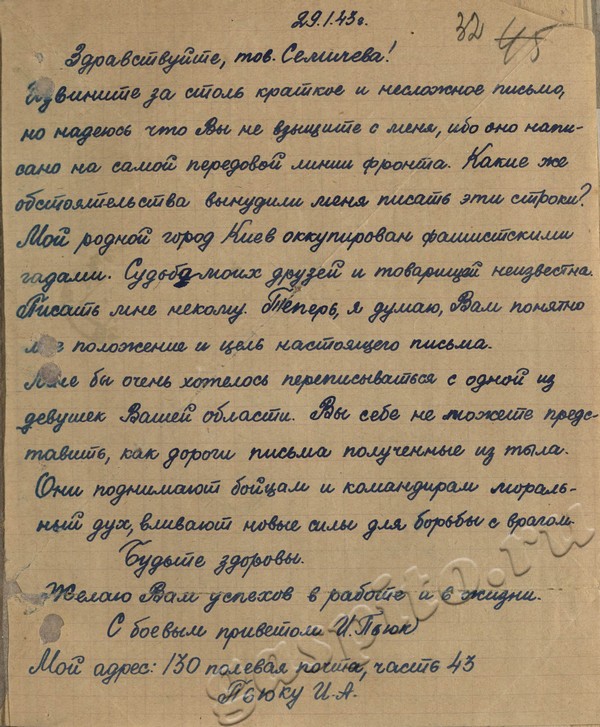 29.1.43г.
32 45
Здравствуйте, тов. Семичева!
Извините за столь краткое и несложное письмо,
но надеюсь что Вы не взыщите с меня, ибо оно напи-
сано на самой передовой линии фронта. Какие же
обстоятельства вынудили меня писать эти строки?
Мой родной город Киев оккупирован фашистскими
гадами. Судьба моих друзей и товарищей неизвестна.
Писать мне некому. Теперь, я думаю, Вам понятно
мое положение и цель настоящего письма.
Мне бы очень хотелось переписываться с одной из
девушек Вашей области. Вы себе не можете предс-
тавить, как дороги письма полученные из тыла.
Они поднимают бойцам и командирам мораль-
ный дух, вливают новые силы для борьбы с врагом.
Будьте здоровы.
Желаю Вам успехов в работе и в жизни.
С боевым приветом И. Пьюк
Мой адрес: 130 полевая почта, часть 43
Пьюку И.А.
gaspito.ru